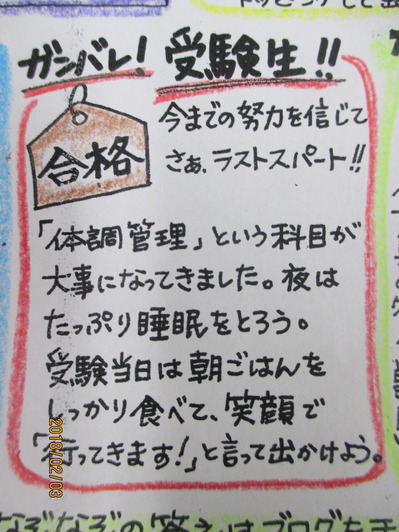 ガンバレ！受験生!!
合格
今までの努力を信じて
さぁ、ラストスパート!!
「体調管理」という科目が
大事になってきました。夜は
たっぷり睡眠をとろう。
受験当日は朝ごはんを
しっかり食べて、笑顔で
「行ってきます！」と言って出かけよう。
2018/02/03
なぞなぞの答えはブログを